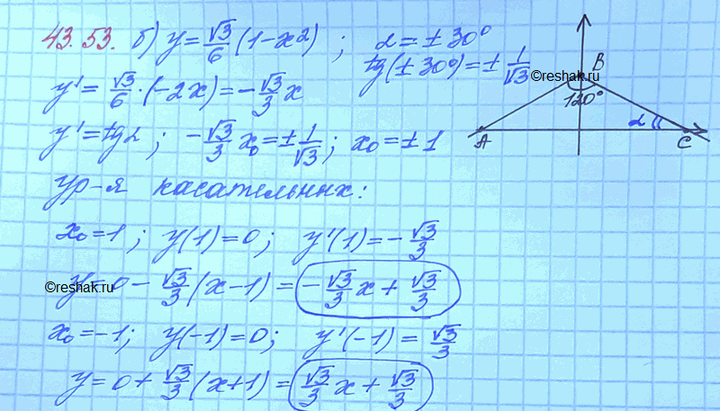 43.53. б) y = √3/6 (1-x²) ; α = ± 30°
tg(± 30°) = ± 1/√3
©reshak.ru
y' = √3/6 · (-2x) = - √3/3 x
B
120°
y' = tgα ; - √3/3 x₀ = ± 1/√3 ; x₀ = ± 1
α
A C
ур-я касательных:
x₀ = 1 ; y(1) = 0 ; y'(1) = - √3/3
©reshak.ru
y = 0 - √3/3 (x-1) = - √3/3 x + √3/3
x₀ = -1; y(-1) = 0; y'(-1) = √3/3
y = 0 + √3/3 (x+1) = √3/3 x + √3/3